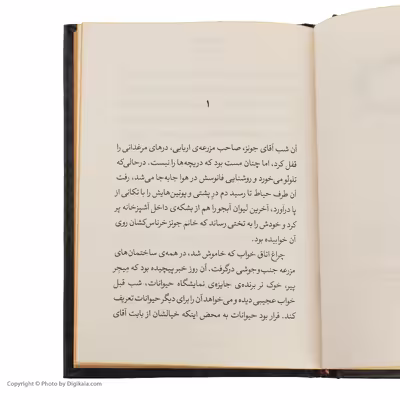 ۱
آن شب آقای جونز، صاحب مزرعه‌ی اربابی، درهای مرغدانی را
قفل کرد، اما چنان مست بود که دریچه‌ها را نبست. درحالی‌که
تلوتو می‌خورد و روشنایی فانوسش در هوا جابه‌جا می‌شد، رفت
آن طرف حیاط تا رسید دم درِ پشتی و پوتین‌هایش را با تکانی از
پا درآورد، آخرین لیوان آبجو را هم از بشکه‌ی داخل آشپزخانه پر
کرد و خودش را به تختی رساند که خانم جونز خرناس‌کشان روی
آن خوابیده بود.
چراغ اتاق خواب که خاموش شد، در همه‌ی ساختمان‌های
مزرعه جنب‌وجوشی درگرفت. آن روز خبر پیچیده بود که میجر
پیر، خوک نر برنده‌ی جایزه‌ی نمایشگاه حیوانات، شب قبل
خواب عجیبی دیده و می‌خواهد آن را برای دیگر حیوانات تعریف
کند. قرار بود حیوانات به محض اینکه خیالشان از بابت آقای
Copyright © Photo by Digikala.com